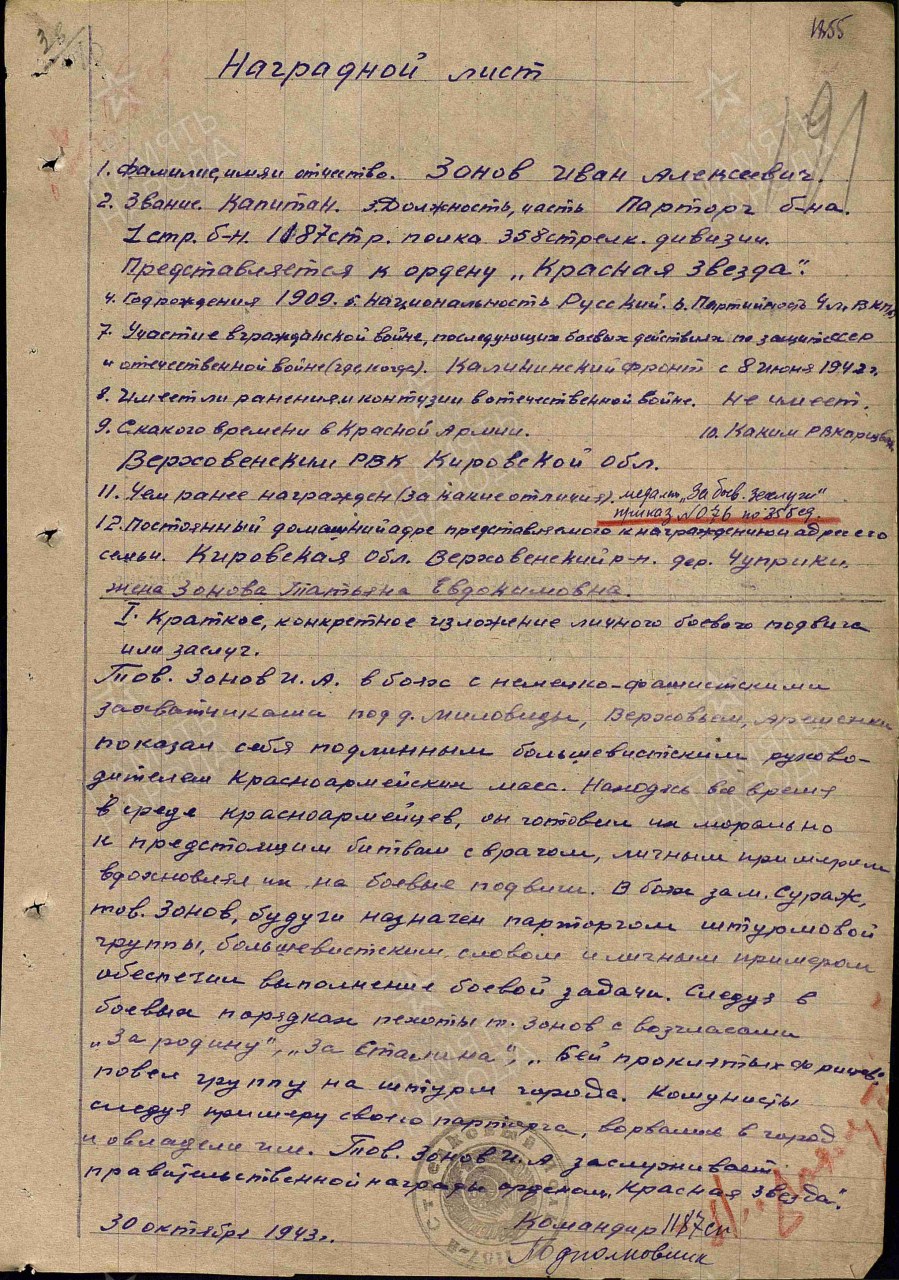 1255
Наградной лист
191
1. Фамилие, имя и отчество. Зонов Иван Алексеевич.
2. Звание. Капитан. 3. Должность, часть Парторг б-на.
1 стр. б-н. 1187 стр. полка 358 стрелк. дивизии.
Представляется к ордену „Красная Звезда".
4. Год рождения 1909. 5. Национальность Русский. 6. Партийность Чл. ВКП(б)
7. Участие в гражданской войне, последующих боевых действиях по защите СССР
и отечественной войне (где, когда). Калининский фронт с 8 июня 1942 г.
8. Имеет ли ранения и контузии в отечественной войне. Не имеет.
9. С какого времени в Красной Армии. 10. Каким РВК призван
Верховенским РВК Кировской обл.
11. Чем ранее награжден (за какие отличия). медаль „За боев. заслуги"
приказ №076 по 358 сд.
12. Постоянный домашний адре представляемого к награждению и адрес его
семьи. Кировская обл. Верховенский р-н. дер. Чуприки.
жена Зонова Татьяна Евдокимовна.
I. Краткое, конкретное изложение личного боевого подвига
или заслуг.
Тов. Зонов И. А. в боях с немецко-фашистскими
захватчиками под д. Миловиды, Верховьем,
показал себя подлинным большевистским руково-
дителем красноармейских масс. Находясь все время
в среде красноармейцев, он готовил их морально
к предстоящим битвам с врагом, личным примером
вдохновлял их на боевые подвиги. В боях за м. Сураж,
тов. Зонов, будучи назначен парторгом штурмовой
группы, большевистским словом и личным примером
обеспечил выполнение боевой задачи. Следуя в
боевых порядках пехоты т. Зонов с возгласами
„За родину", „За Сталина", „Бей проклятых фрицев"
повел группу на штурм города. Комунисты
следуя примеру своего парторга, ворвались в город
и овладели им. Тов. Зонов И. А. заслуживает
правительственной награды орденом „Красная звезда".
30 октября 1943 г. Командир 1187 сп
Подполковник
ПАМЯТЬ НАРОДА